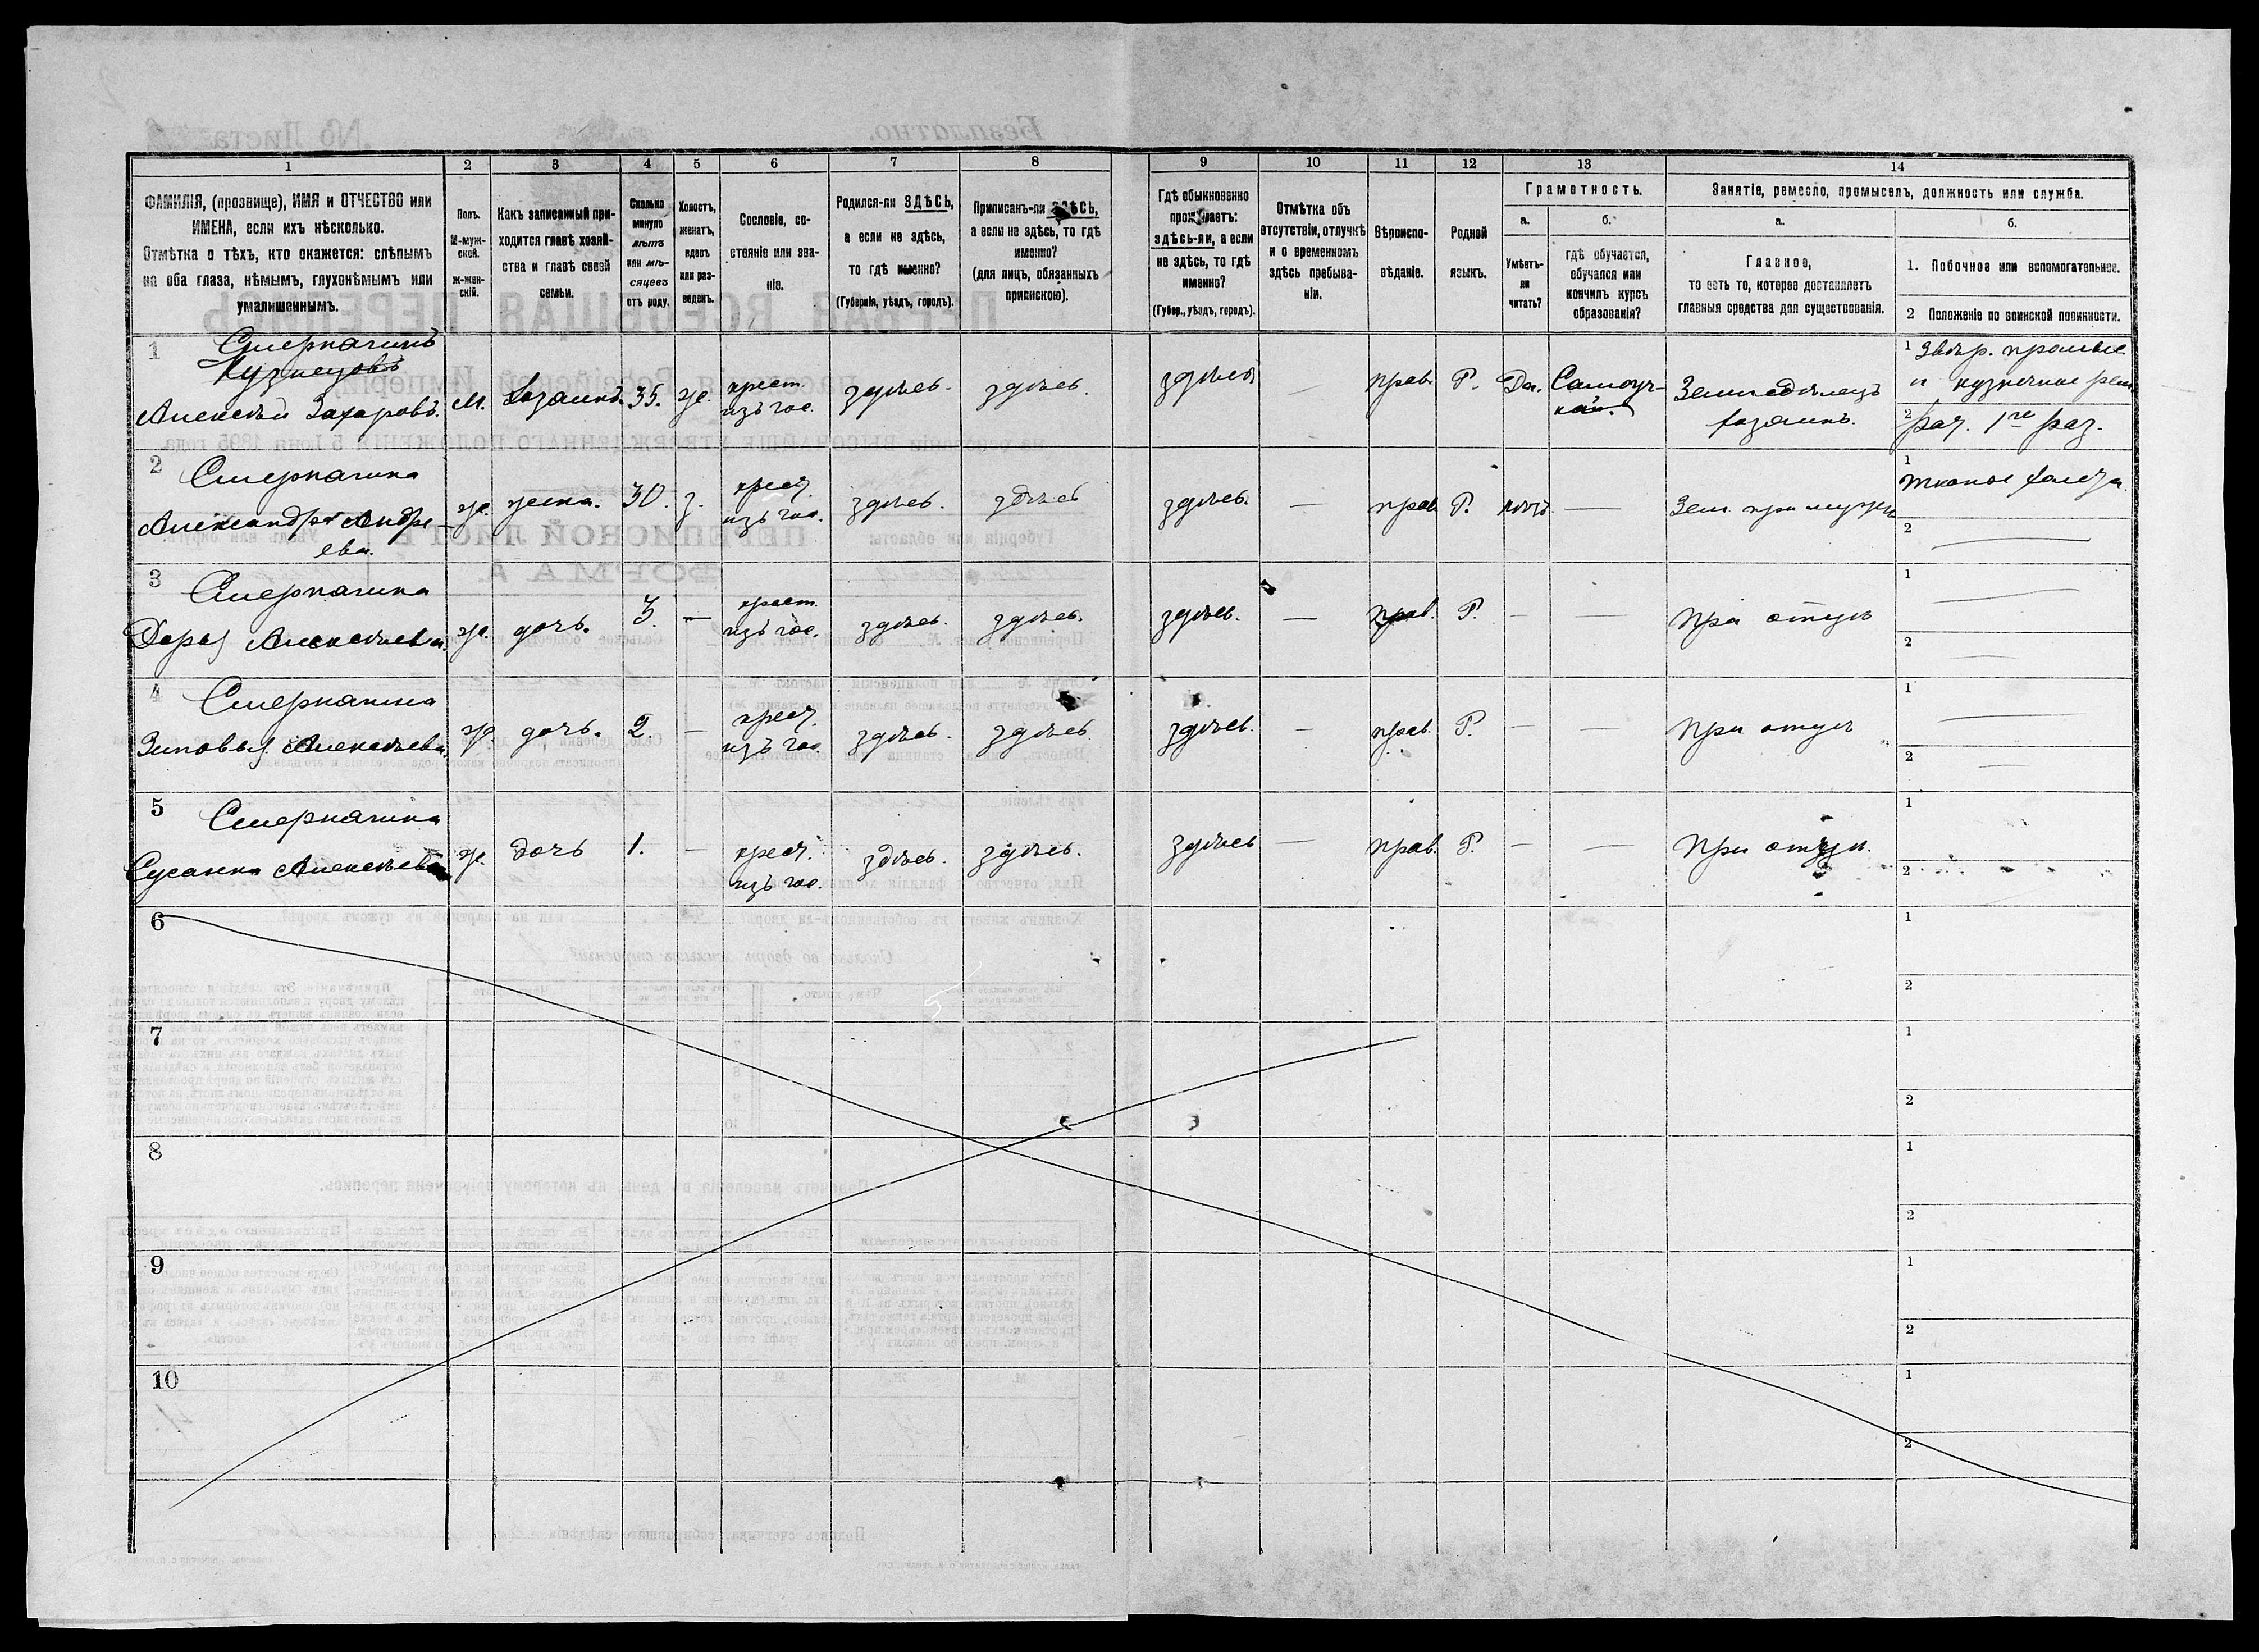 1
2
3
4
5
6
7
8
9
10
11
12
13
14
ФАМИЛІЯ, (прозвище), ИМЯ и ОТЧЕСТВО или
ИМЕНА, если ихъ нѣсколько.
Отмѣтка о тѣхъ, кто окажется: слѣпымъ
на оба глаза, нѣмымъ, глухонѣмымъ или
умалишеннымъ.
Полъ.
М-муж-
ской.
ж-жен-
скій.
Какъ записанный при-
ходится главѣ хозяй-
ства и главѣ своей
семьи.
Сколько
минуло
лѣтъ
или мѣ-
сяцевъ
отъ роду.
Холостъ,
женатъ,
вдовъ
или раз-
веденъ.
Сословіе, со-
стояніе или зва-
ніе.
Родился-ли ЗДѢСЬ,
а если не здѣсь,
то гдѣ именно?
(Губернія, уѣздъ, городъ).
Приписанъ-ли ЗДѢСЬ,
а если не здѣсь, то гдѣ
именно?
(для лицъ, обязанныхъ
припискою).
Гдѣ обыкновенно
проживаетъ:
здѣсь-ли, а если
не здѣсь, то гдѣ
именно?
(Губер., уѣздъ, городъ).
Отмѣтка объ
отсутствіи, отлучкѣ
и о временномъ
здѣсь пребыва-
ніи.
Вѣроиспо-
вѣданіе.
Родной
языкъ.
Грамотность.
а.
б.
Умѣетъ-
ли
читать?
гдѣ обучается,
обучался или
кончилъ курсъ
образованія?
Занятіе, ремесло, промыселъ, должность или служба.
а.
б.
Главное,
то есть то, которое доставляетъ
главныя средства для существованія.
1. Побочное или вспомогательное.
2 Положеніе по воинской повинности.
1
Кузнецовъ
Алексѣй Захаровъ.
м.
Хозяинъ.
35.
ж.
крест.
изъ гос.
здѣсь.
здѣсь.
здѣсь
—
прав.
Р.
Да.
Самоуч-
кой.
Земледѣлецъ
хозяинъ.
1 Звѣр. промыс.
и кузнечное рем.
2 рат. 1го раз.
2
Александра Андре-
ева.
ж.
жена.
30.
з.
крест.
изъ гос.
здѣсь.
здѣсь
здѣсь.
—
прав.
Р.
нѣтъ.
—
Зем. при мужѣ
1
тканье холста.
2
3
Дарья Алексѣева.
ж.
дочь.
3.
—
крест.
изъ гос.
здѣсь.
здѣсь.
здѣсь.
—
прав.
Р.
—
—
При отцѣ
1
2
4
Зиновья Алексѣева.
ж.
дочь.
2.
—
крест.
изъ гос.
здѣсь.
здѣсь.
здѣсь.
—
прав.
Р.
—
—
При отцѣ
1
2
5
Сусанна Алексѣева
ж.
дочь
1.
—
крест.
изъ гос.
здѣсь.
здѣсь.
здѣсь
—
прав.
Р.
—
—
При отцѣ.
1
2
6
1
2
7
1
2
8
1
2
9
1
2
10
1
2